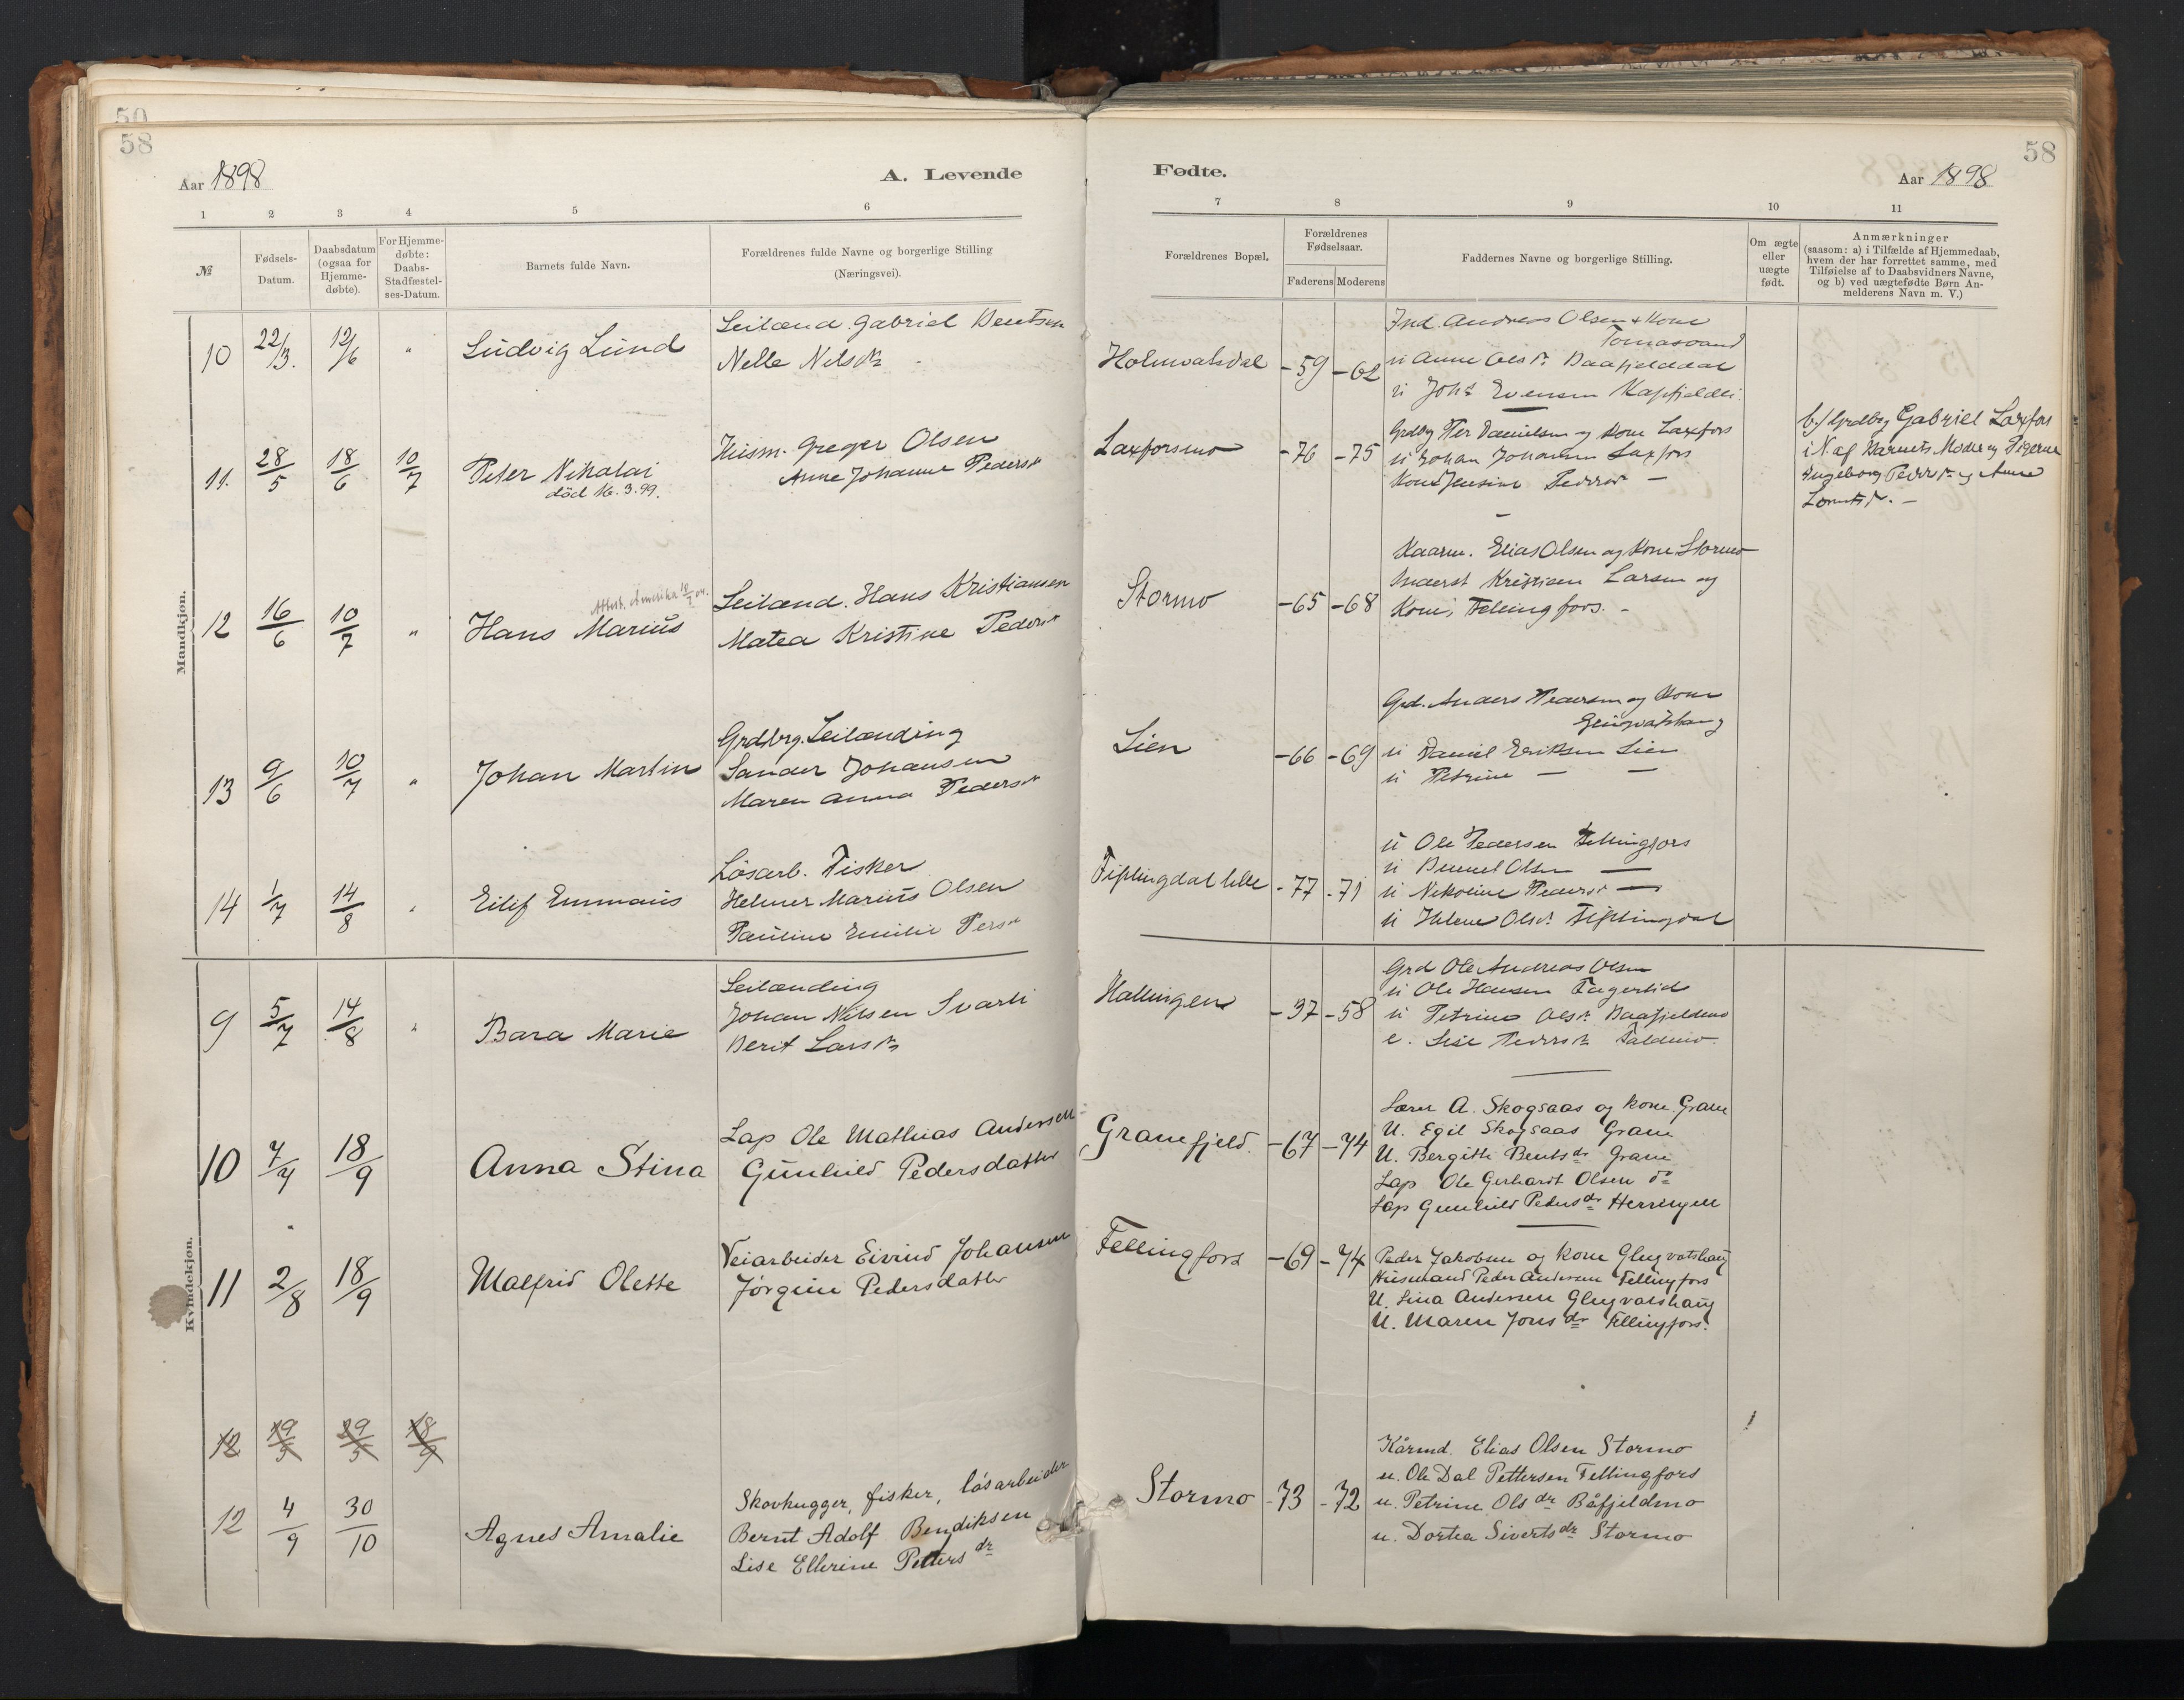 50
58
58
Aar 1898
A. Levende
Fødte.
Aar 1898
1 2 3 4 5 6
7 8 9 10 11
№
Fødsels-
Datum.
Daabsdatum
(ogsaa for
Hjemme-
døbte).
For Hjemme-
døbte:
Daabs-
Stadfæstel-
ses-Datum.
Barnets fulde Navn.
Forældrenes fulde Navne og borgerlige Stilling
(Næringsvei).
Forældrenes Bopæl.
Forældrenes
Fødselsaar.
Faderens Moderens
Faddernes Navne og borgerlige Stilling.
Om ægte
eller
uægte
født.
Anmærkninger
(saasom: a) i Tilfælde af Hjemmedaab,
hvem der har forrettet samme, med
Tilføielse af to Daabsvidners Navne,
og b) ved uægtefødte Børn An-
melderens Navn m. V.)
Mandkjøn.
10 22/3. 12/6 " Ludvig Lund
Leilænd. Gabriel Bentsen
Nelle Nelsdr
Holmvatsdal -59 -62
Ind. Andreas Olsen & Kone
Tomasvand
u Anne Olsdr. Baafjelddal
u Johs Evensen Kapfjeldli.
11. 28/5 18/6 10/7 Peter Nikolai
död 16.3.99.
Husm. Greger Olsen
Anne Johanne Pedersdr
Laxforsmo -76 -75
Grdbrg Per Danielsen og Kone Laxfors
u Johan Johansen Laxfors
Kone Jensine Pedersdr —
b/ Grdbrg Gabriel Laxfors
i N. af Barnets Moder og Pigerne
Ingeborg Pedersdr. og Anne
12 16/6 10/7 " Hans Marius
Attest. Amerika
Leilænd. Hans Kristiansen
Matea Kristine Pedersdr
Stormo -65 -68
Kaarm. Elias Olsen og Kone Stormo
Inderst Kristian Larsen og
Kone, Fellingfors. -
13 9/6 10/7 " Johan Martin
Grdbrg. Leilænding
Sander Johansen
Maren Anna Pedersdr
Lien -66 -69
Grd. Anders Pedersen og Kone
Glugvatshaug
u Daniel Eriksen Lien
u Petrine — —
14 1/7 14/8 " Eilif Emmaus
Lösarb. Fisker
Helmer Marius Olsen
Pauline Emilie Persdr
Fiplingdal lille -77 -71
u Ole Pedersen Fellingfors
u Bennet Olsen —
u Nikoline Pedersdr —
u Helene Olsdr. Fiplingdal
Kvindekjøn.
9 5/7 14/8 " Bara Marie
Leilænding
Johan Nilsen Svarli
Berit Larsdr
Hallingen -37 -58
Grd Ole Andreas Olsen
u Ole Hansen Fagerlid
u Petrine Olsdr. Baafjeldmo
e. Lise Pedersdr
10 7/7 18/9 Anna Stina
Lap Ole Mathias Andersen
Gunhild Pedersdatter
Granefjeld. -67 -74
Lærer A. Skogsaas og kone. Grane
U. Egil Skogsaas Grane
U. Bergitte Bentsdr Grane
Lap Ole Gerhardt Olsen do
Lap Gunhild Pedersdr Herringen
11 2/8 18/9 Malfrid Olette
Veiarbeider Eivind Johansen
Jørgine Pedersdatter
Fellingfors -69 -74
Peder Jakobsen og kone Glugvatshaug
Husmand Peder Andersen Fellingfors
U. Lina Andersen Glugvatshaug
U. Maren Jonsdr Fellingfors.
12 19/5 29/5 18/9
12 4/9 30/10 Agnes Amalie
Skovhugger, fisker, løsarbeider
Bernt Adolf Bendiksen
Lise Ellerine Pettersdr
Stormo -73 -72
Kårmd. Elias Olsen Stormo
u. Ole Dal Pettersen Fellingfors
u. Petrine Olsdr Båfjeldmo
u. Dortea Sivertsdr Stormo